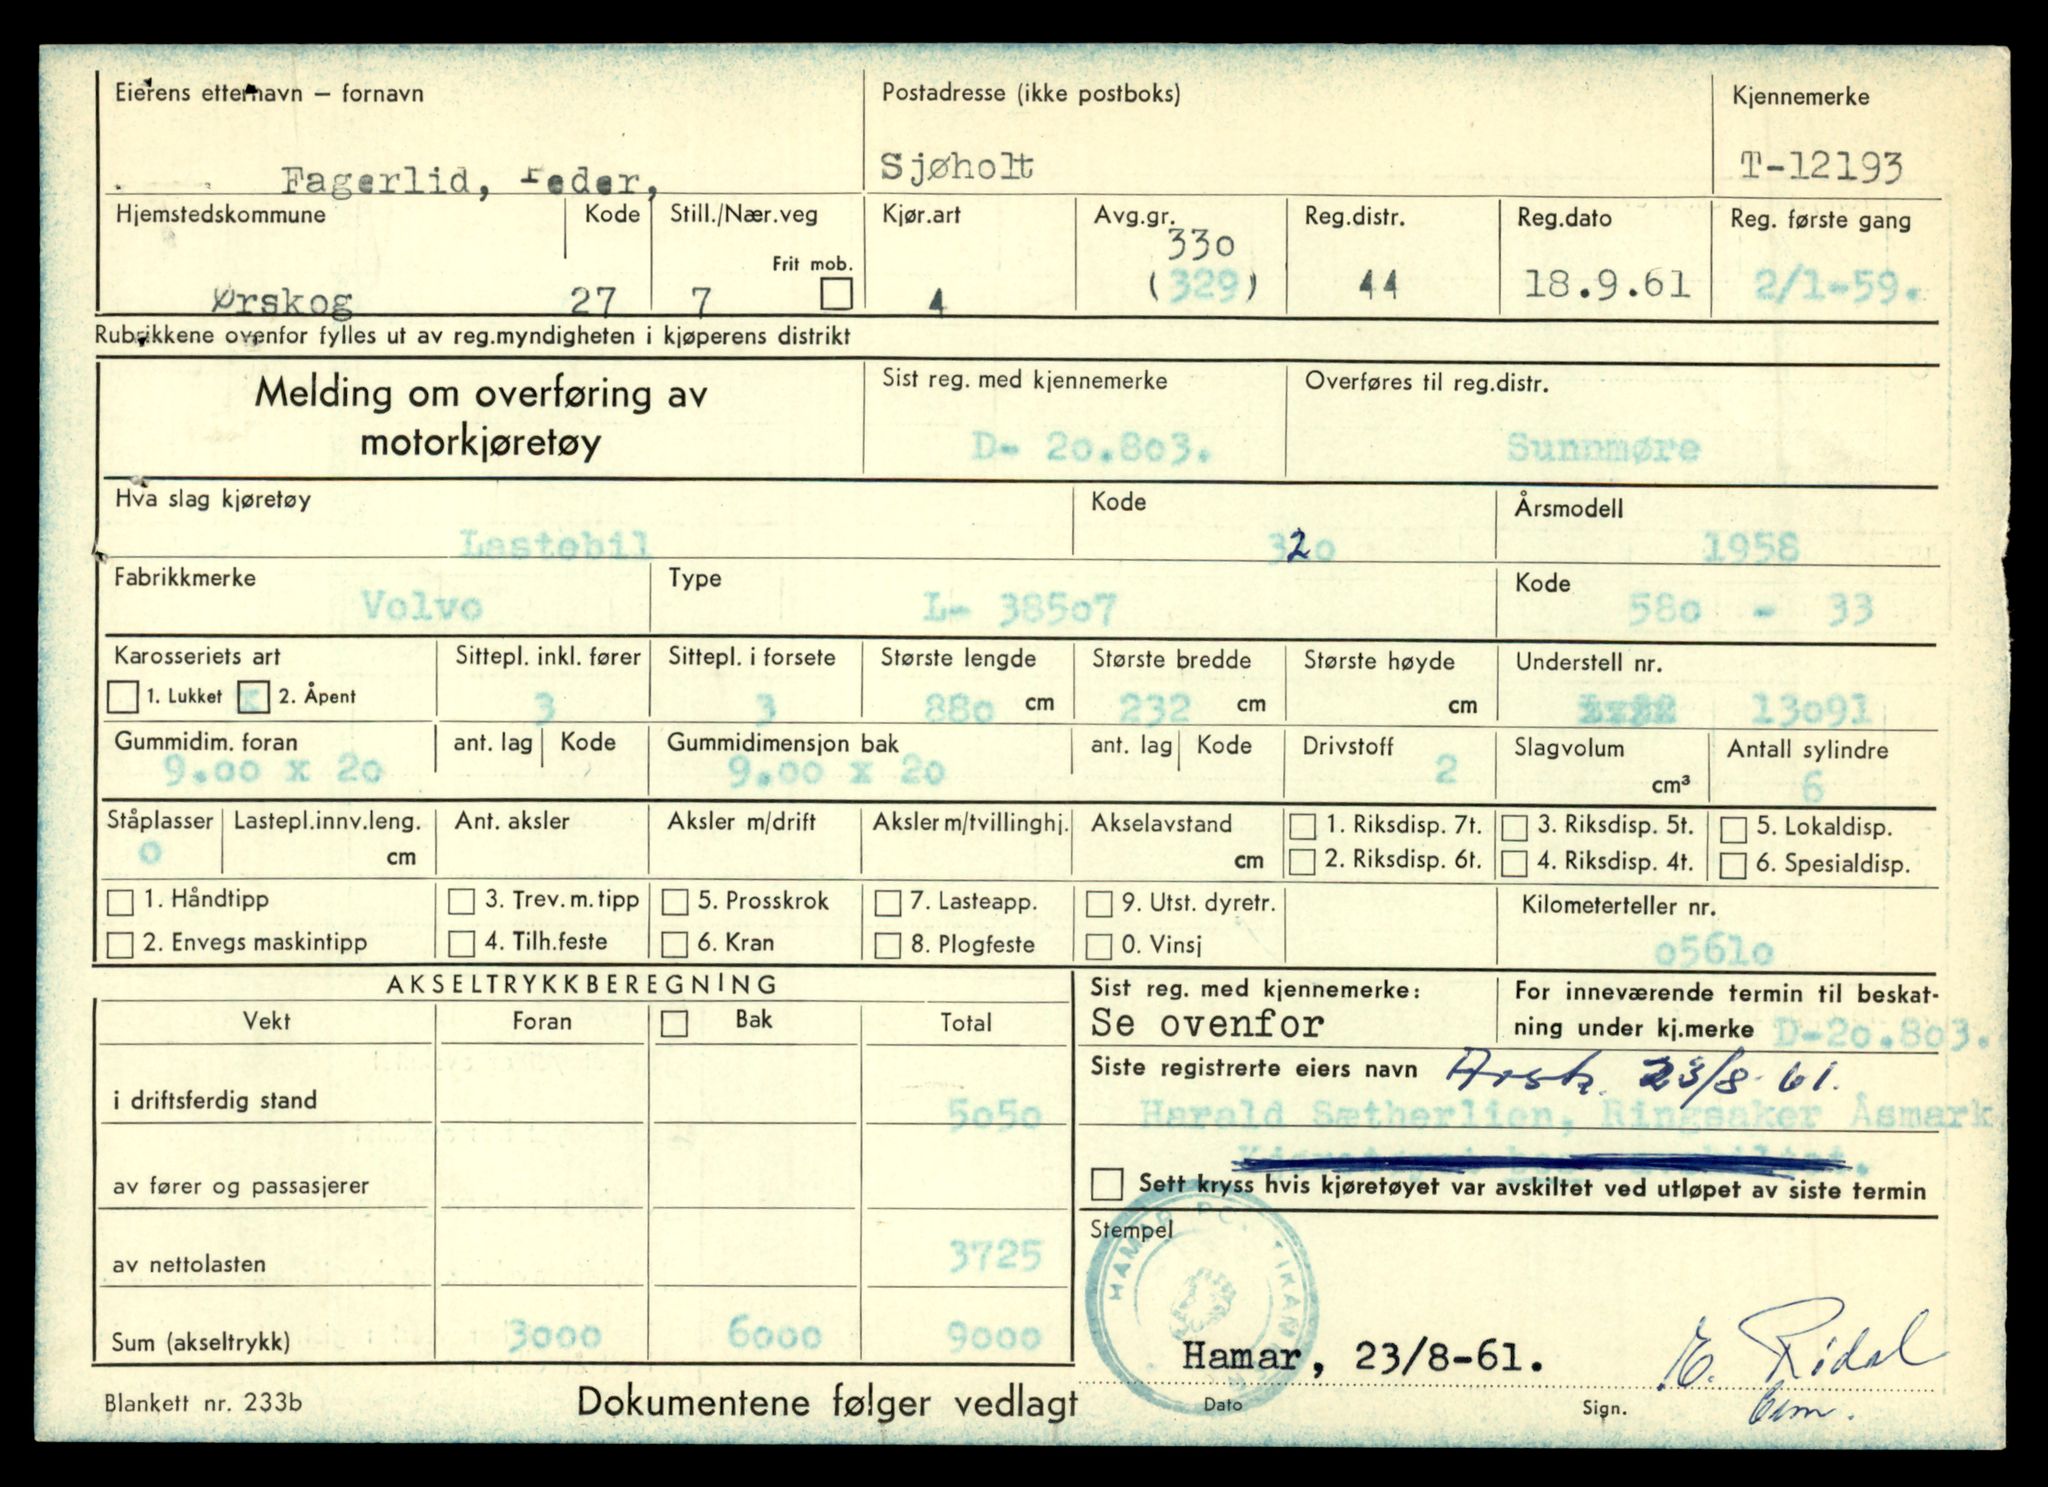 Eierens etternavn – fornavn
Postadresse (ikke postboks)
Kjennemerke
Fagerlid, Peder,
Sjøholt
T-12193
Hjemstedskommune
Kode
Still./Nær.veg
Kjør.art
Avg.gr.
Reg.distr.
Reg.dato
Reg. første gang
Frit mob.
330
Ørskog
27
7
4
(329)
44
18.9.61
2/1-59.
Rubrikkene ovenfor fylles ut av reg.myndigheten i kjøperens distrikt
Melding om overføring av
motorkjøretøy
Sist reg. med kjennemerke
D- 20.803.
Overføres til reg.distr.
Sunnmøre
Hva slag kjøretøy
Lastebil
Kode
320
Årsmodell
1958
Fabrikkmerke
Volvo
Type
L- 38507
Kode
580 - 33
Karosseriets art
Sittepl. inkl. fører
Sittepl. i forsete
Største lengde
Største bredde
Største høyde
Understell nr.
1. Lukket
x
2. Åpent
3
3
880 cm
232 cm
cm
13091
Gummidim. foran
ant. lag
Kode
Gummidimensjon bak
ant. lag
Kode
Drivstoff
Slagvolum
Antall sylindre
9.00 x 20
9.00 x 20
2
cm³
6
Ståplasser
Lastepl.innv.leng.
Ant. aksler
Aksler m/drift
Aksler m/tvillinghj.
Akselavstand
1. Riksdisp. 7t.
3. Riksdisp. 5t.
5. Lokaldisp.
0
cm
cm
2. Riksdisp. 6t.
4. Riksdisp. 4t.
6. Spesialdisp.
1. Håndtipp
3. Trev. m. tipp
5. Prosskrok
7. Lasteapp.
9. Utst. dyretr.
Kilometerteller nr.
2. Envegs maskintipp
4. Tilh.feste
6. Kran
8. Plogfeste
0. Vinsj
05610
AKSELTRYKKBEREGNING
Vekt
Foran
Bak
Total
i driftsferdig stand
5050
av fører og passasjerer
av nettolasten
3725
Sum (akseltrykk)
3000
6000
9000
Sist reg. med kjennemerke:
Se ovenfor
For inneværende termin til beskat-
ning under kj.merke D-20.803.
Siste registrerte eiers navn
23/8-61.
Harald Sætherlien, Ringsaker Åsmark
Sett kryss hvis kjøretøyet var avskiltet ved utløpet av siste termin
Stempel
HAMAR
Hamar, 23/8-61.
E. Ridal
Dato
Sign.
Blankett nr. 233b
Dokumentene følger vedlagt